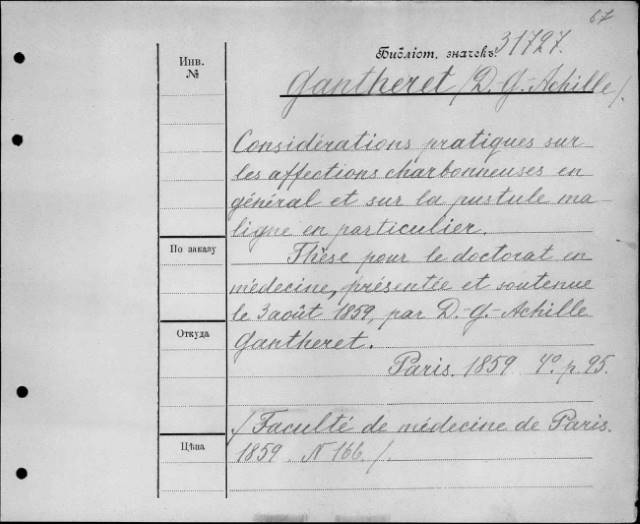 67
Библіот. значекъ: 31727.
Инв.
№
Gantheret /D. G.-Achille/.
Considérations pratiques sur
les affections charbonneuses en
général et sur la pustule ma-
ligne en particulier.
По заказу
Thèse pour le doctorat en
médecine, présentée et soutenue
le 3 août 1859, par D.-G.-Achille
Откуда
Gantheret.
Paris. 1859. 4º. p. 95.
/Faculté de médecine de Paris.
Цѣна
1859. N 166./.